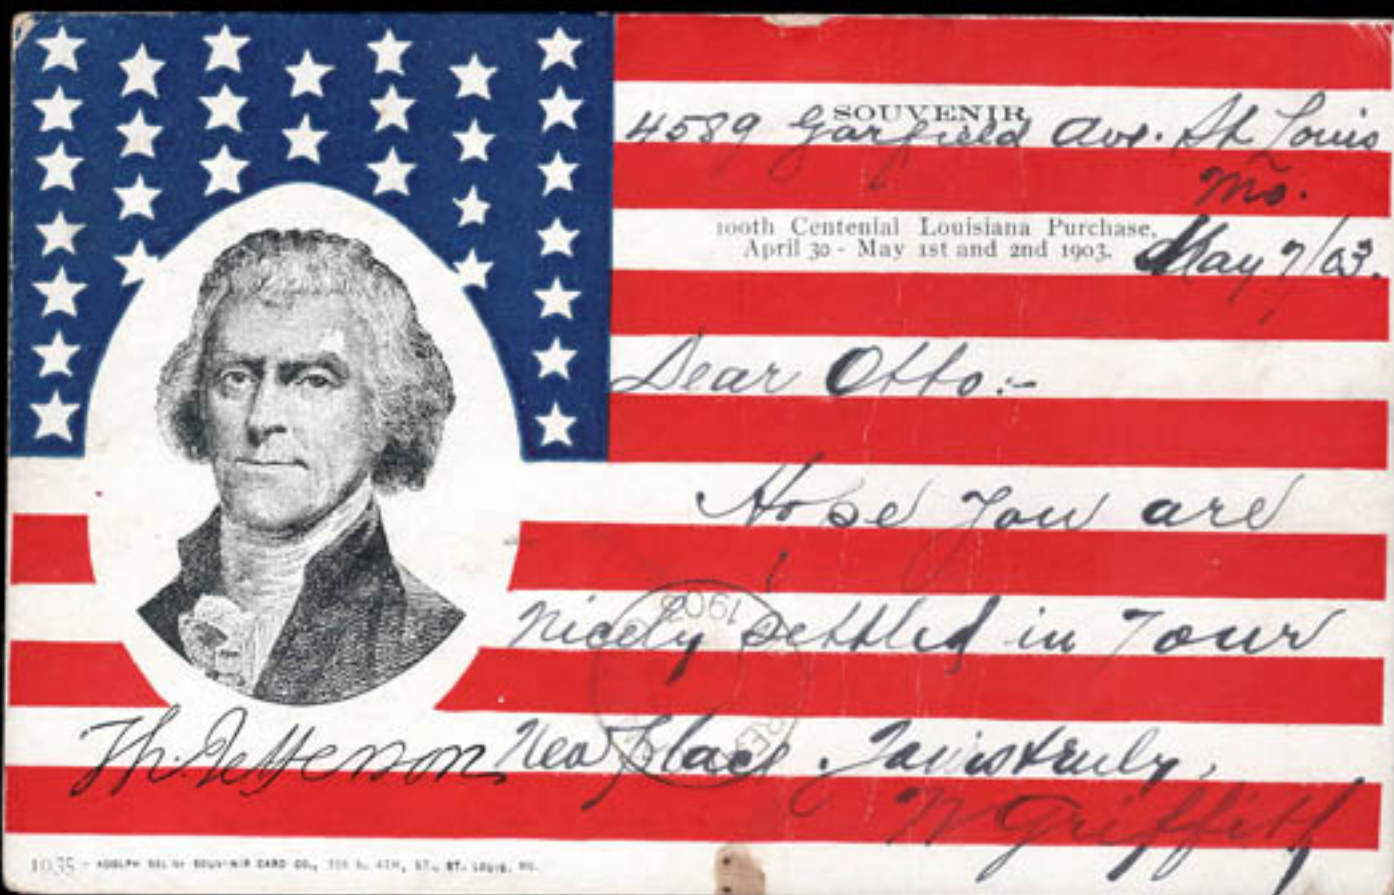 SOUVENIR
4589 Garfield Ave. St Louis
Mo.
100th Centenial Louisiana Purchase,
April 30 - May 1st and 2nd 1903.
May 7/03.
Dear Otto:-
Hope you are
nicely settled in your
new place. Yours truly,
W Griffith
Th. Jefferson
190
REC
1035 - ADOLPH SOUVENIR CARD CO., N. 4TH, ST., ST. LOUIS, MO.